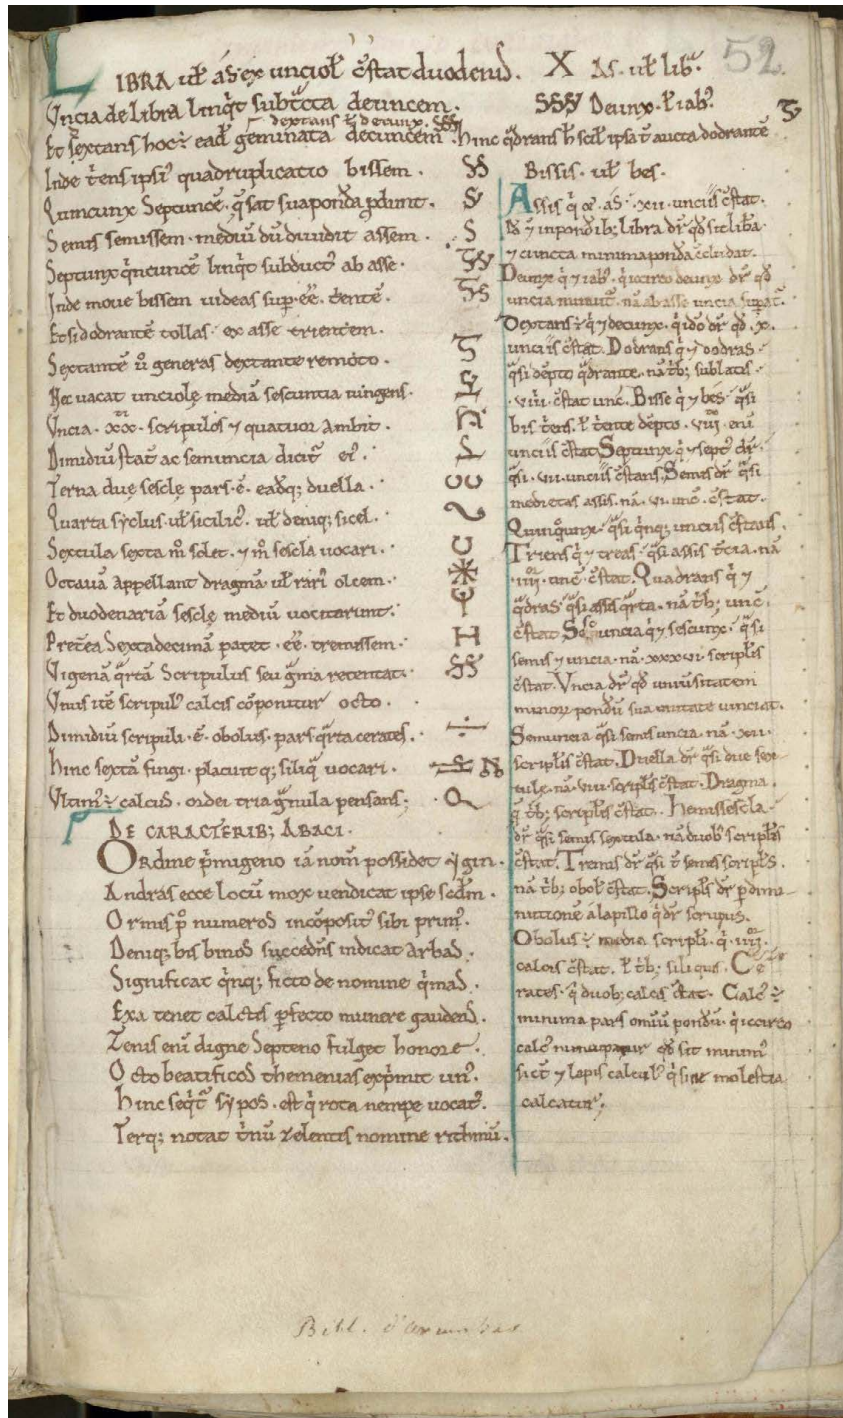 52
LIBRA ut̄ áS ex unciol̄ c̄stat duodenis. X AS. ut̄ lib̄.
Uncia de libra linq̄t subt̄cta deuncem. SSS Deunx. t̄ iab̾.
dextans t̄ decunx.
Et sextans hoc ē ead̄ geminata decuncem. hinc q̄drans h̄ ipsa aucta dodrantē
Inde t̄ens ipsi̾ quadruplicatio bissem.
Quincunx Septuncē. q̄sat sua pond̄a
Semis semissem. mediū dū diuidit assem.
Septunx q̄ncuncē linq̄t subduct̾ ab asse.
Inde moue bissem uideas sup̄.ēē. t̄entē.
Et si dodrantē tollas. ex asse trientem.
Sextantē u̾ generas dextante remoto.
Hec uacat unciolę mediā sescuntia iungens.
Uncia. xx. scripulos ⁊ quatuor ambit.
Dimidiū stat̄ ac semuncia dicit̄ ei̾.
Terna duę sesclę pars.ē. eadq; duella.
Quarta syclus. ut̄ silic̾. ut̄ deniq; sicel.
Sextula sexta m̊ solet. ⁊ m̊ sescla uocari.
Octauā appellant dragmā ut̄ rari̾ olcem.
Et duodenariā sesclę mediū uocitarunt.
Pret̄ea Sextadecimā patet. ēē. tremissem.
Vigenā q̄rtā Scripulus seu g̃ma retentat.
Unus itē scripul̾ calcis cōponitur octo.
Dimidiū scripuli.ē. obolus. pars q̄rta cerates.
hinc sextā fingi. placuit q; siliq̄ uocari.
Ultim̾ ē calcus. ciceri tria g̃nula pensans;
DE CARACTERIB; ABACI.
Ordine p̄migeno iā nom̄ possidet igin.
Andras ecce locū mox uendicat ipse sc̄dm̄.
Ormis p̊ numeros incōposit̾ sibi prim̾.
Deniq; bis binos succedn̄s indicat Arbas.
Significat q̄nq; ficto de nomine q̄mas.
Exa tenet calctis p̄fecto munere gaudens.
Zenis enī digne Septeno fulget honore.
Octo beatificos themenias exp̄mit un̾.
hinc seq̄t̄ sy pos. est q̄ rota nempe uocat̾.
Terq; notat t̄nū zelentis nomine rithmū.
Bissis. ut̄ bes.
Assis q̄ ⁊ as. xii. unciis c̄stat.
in pondib; libra dr̄ qd̄ sic lib̄a
⁊ cuncta minima pond̄a c̄cludat.
Deunx q̄ ⁊ iab̾. q̄ iccirco deunx dr̄ qd̄
uncia minuit̄. nā ab asse uncia supat̄.
Dextans ē q̄ ⁊ decunx. q̄ ido dr̄ qd̄. x.
unciis c̄stat. Dodrans q̄ ⁊ dodras.
q̄si dēpto q̄drante. nā t̄b; sublatis.
.viiii. c̄stat unc̄. Bisse q̄ ⁊ bes. q̄si
bis t̄ens. t̄ t̄ente dēpto. viii. enī
unciis c̄stat Septunx q̄ ⁊ sept̾ dr̄.
q̄si. vii. unciis c̄stans. Semis dr̄ q̄si
medietas assis. nā. vi. unc̄. c̄stat.
Quinqunx. q̄si q̄nq; unciis c̄stans.
Triens q̄ ⁊ treas. q̄si assis t̄cia. nā
.iiii. unc̄. c̄stat. Quadrans q̄ ⁊
q̄dras. q̄si assis q̄rta. nā t̄b; unc̄.
c̄stat. Sescuncia q̄ ⁊ sescunx. q̄si
semis ⁊ uncia. nā. xxxvi. scripl̄is
c̄stat. Uncia dr̄ qd̄ uniūsitatem
minorū pondū sua unitate uinciat.
Semuncia q̄si semis uncia. nā. xii.
scripl̄is c̄stat. Duella dr̄ q̄si due sex
tulę. nā. viii. scripl̄is c̄stat. Dragma.
q̄ t̄b; scripl̄is c̄stat. hemissescla.
dr̄ q̄si semis sextula. nā duob; scripl̄is
c̄stat. Tremis dr̄ q̄si t̄ semis scripl̄s.
nā t̄b; obol̄ c̄stat. Scripl̄s dr̄ p̄ dimi-
nutionē a lapillo q̄ dr̄ scrupus.
Obolus ē media scripl̄i. q̄. iiii.
calcis c̄stat. t̄ t̄b; siliquis. Cē
rates. q̄ duob; calcis c̄stat. Calc̾ ē
minima pars omīū pondū. q̄ iccirco
calc̾ nuncupatur qd̄ sit minim̾
sic̄t ⁊ lapis calcul̾ q̄ sine molestia
calcatur;